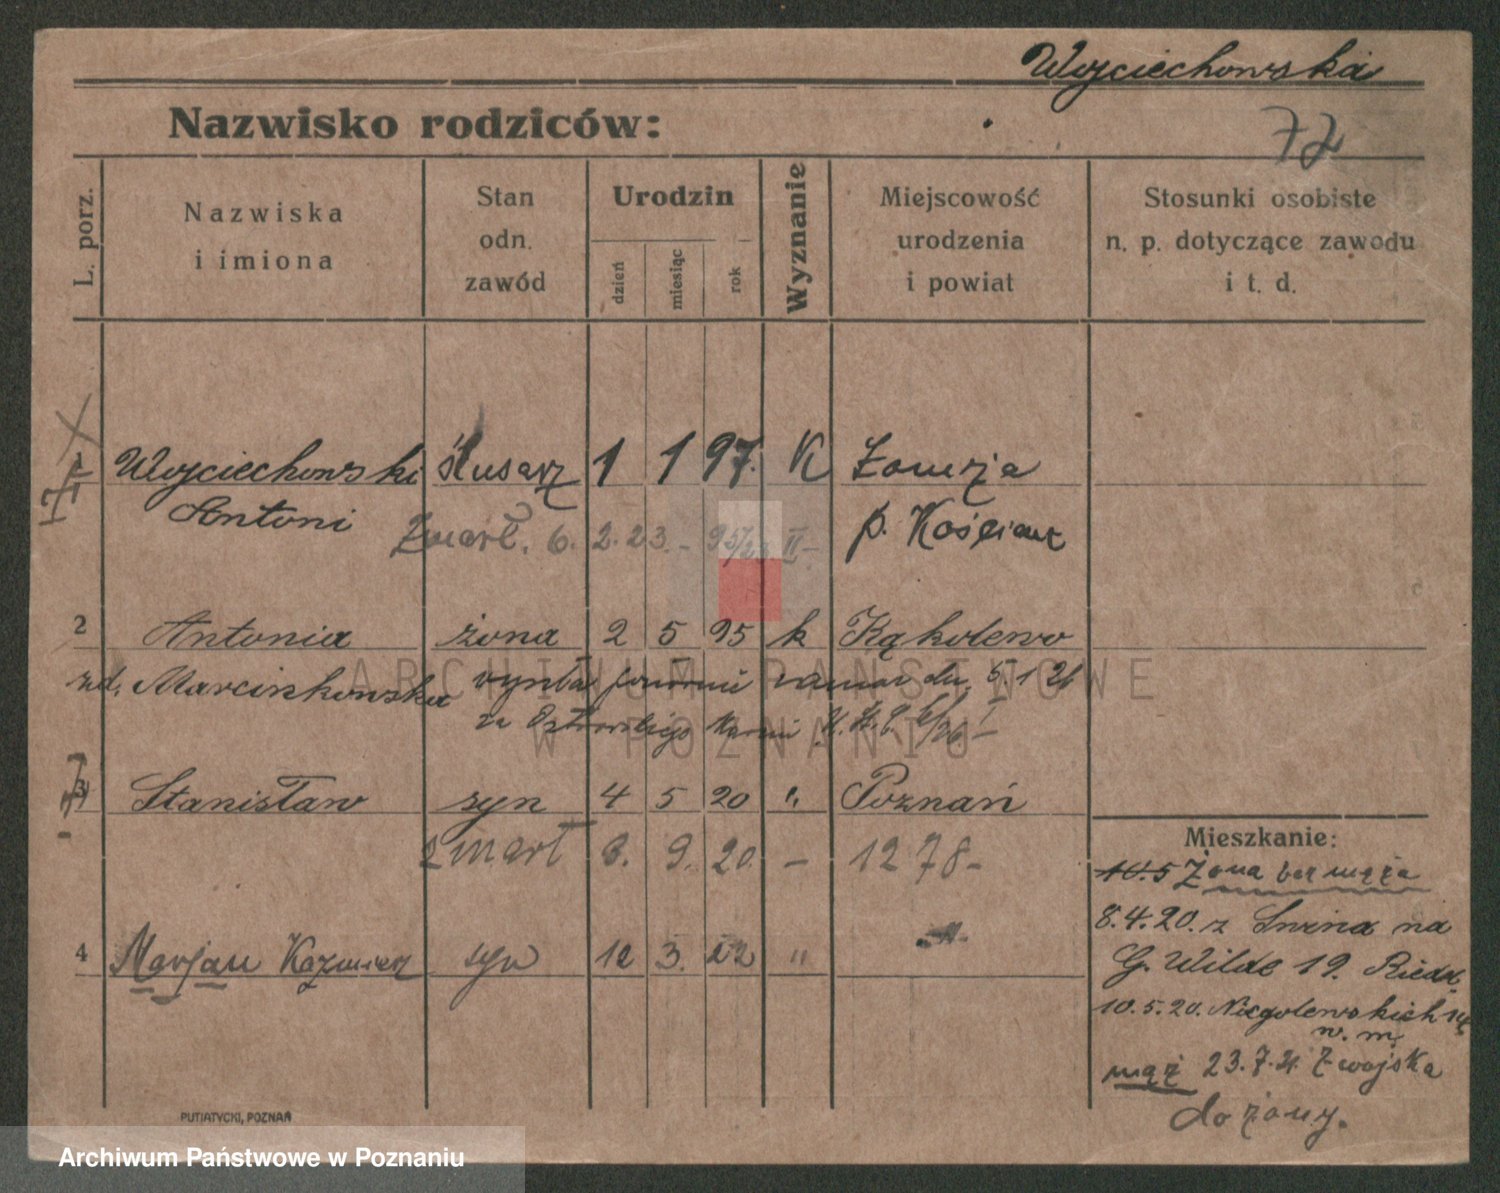 Wojciechowska
Nazwisko rodziców:
72
L. porz.
Nazwiska
i imiona
Stan
odn.
zawód
Urodzin
dzień
miesiąc
rok
Wyznanie
Miejscowość
urodzenia
i powiat
Stosunki osobiste
n. p. dotyczące zawodu
i t. d.
1 Wojciechowski ślusarz 1 1 97. K
Antoni p. Kościan
Zmarł. 6. 2. 23. II
2 Antonia żona 2 5 95 k Kąkolewo
zd. Marcinkowska
5. 1 26
3 Stanisław syn 4 5 20 " Poznań
zmarł 9. 20. — 1278 -
4 Marjan Kazimierz syn 12 3. 22 "
Mieszkanie:
10.5 Żona bez męża
8.4.20. z na
G. Wilde 19.
10.5.20. Niegolewskich 14
w. m.
mąż 23.7.21 Z wojska
do żony.
PUTIATYCKI, POZNAŃ
ARCHIWUM PAŃSTWOWE
W POZNANIU
Archiwum Państwowe w Poznaniu